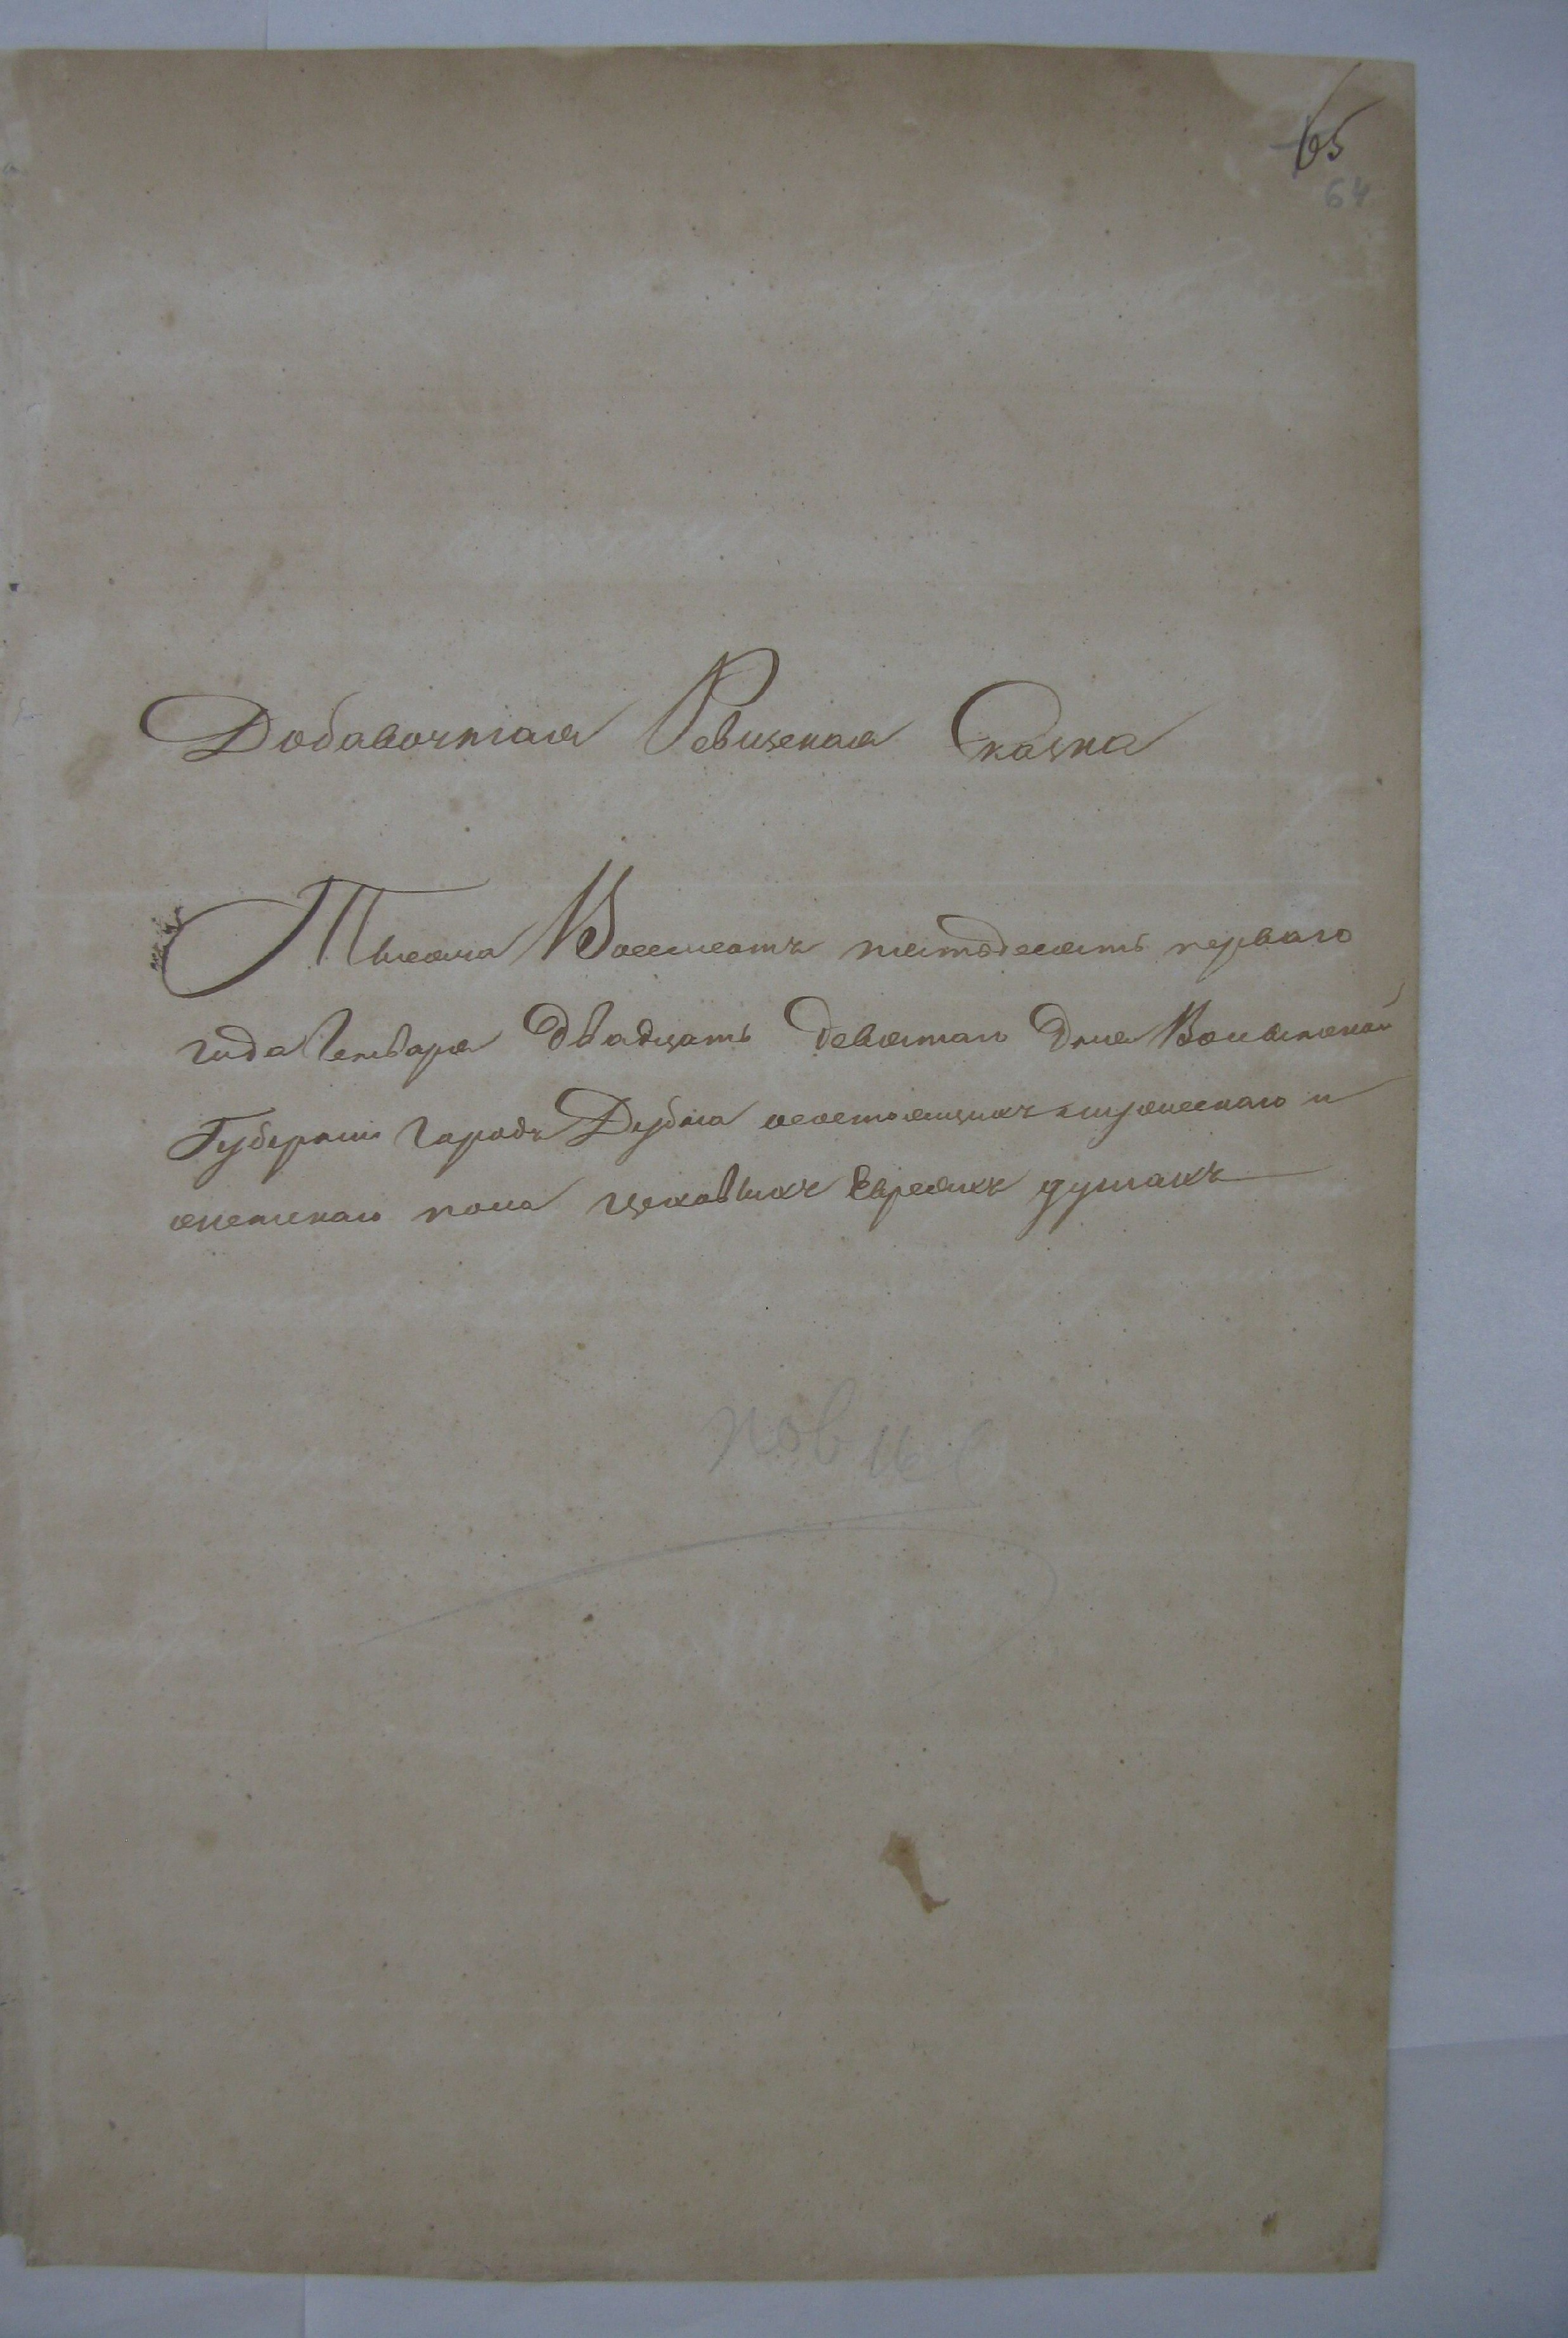 65
64
Добавочная Ревизская Сказка
Тысяча Восемсотъ пятдесятъ перваго
года Генваря двадцать девятаго дня Волынской
Губерніи Города Дубна состоящихъ мужескаго и
женскаго пола цеховыхъ Евреяхъ душахъ